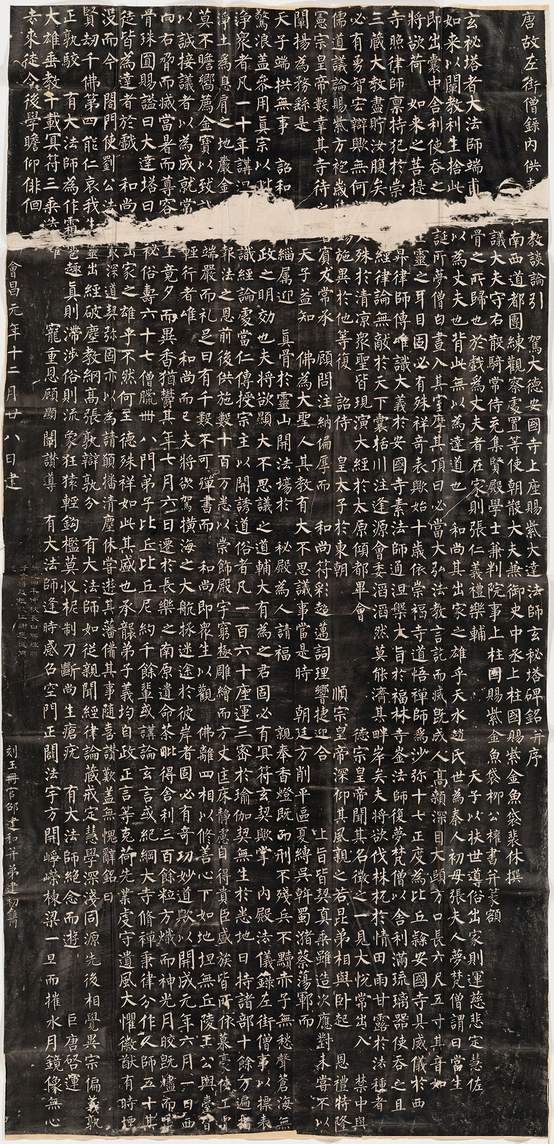 唐故左街僧錄內供 教談論引 駕大德安國寺上座賜紫大達法師玄秘塔碑銘并序
南西道都團練觀察處置等使朝散大夫兼御史中丞上柱國賜紫金魚袋裴休撰
大夫守右散騎常侍充集賢殿學士兼判院事上柱國賜紫金魚袋柳公權書并篆額
玄秘塔者大法師端甫 骨之所歸也於戲為丈夫者在家則張仁義禮樂輔 天子以扶世導俗出家則運慈悲定慧佐
如來以闡教利生捨此 以為丈夫也背此無以為達道也 和尚其出家之雄乎天水趙氏世為秦人初母張夫人夢梵僧謂曰當生
即出囊中舍利使吞之 誕所夢僧白晝入其室摩其頂曰必當大弘法教言訖而滅既成人高顙深目大頤方口長六尺五寸其音如
將欲荷 如來之菩提 靈之耳目固必有殊祥奇表歟始十歲依崇福寺道悟禪師為沙彌十七正度為比丘隸安國寺具威儀於西
寺照律師稟持犯於崇 昇律師傳唯識大義於安國寺素法師通涅槃大旨於福林寺崟法師復夢梵僧以舍利滿琉璃器使吞之且
三藏大教盡貯汝腹矣 經律論無敵於天下囊括川注逢源會委滔滔然莫能濟其畔岸矣夫將欲伐株杌於情田雨甘露於法種者
必有勇智宏辯歟無何 殊於清涼眾聖皆現演大經於太原傾都畢會 德宗皇帝聞其名徵之一見大悅常出入 禁中與
道議論賜紫方袍歲時 施異於他等復 詔侍 皇太子於東朝 順宗皇帝深仰其風親之若昆弟相與臥起 恩禮特隆
憲宗皇帝數幸其寺待 賓友常承 顧問注納偏厚而 和尚符彩超邁詞理響捷迎合 上旨皆契真乘雖造次應對未嘗不以
闡揚為務繇是 天子益知 佛為大聖人其教有大不思議事當是時 朝廷方削平區夏縛吳斡蜀瀦蔡蕩鄆而
天子端拱無事 詔和 緇屬迎 真骨於靈山開法場於 秘殿為人請福 親奉香燈既而刑不殘兵不黷赤子無愁聲蒼海無
驚浪蓋參用真宗以毗 政之明效也夫將欲顯大不思議之道輔大有為之君固必有冥符玄契歟掌 內殿法儀錄左街僧事以標表
淨眾者凡一十年講涅 識經論處當仁傳授宗主以開誘道俗者凡一百六十座運三密於瑜伽契無生於悉地日持諸部十餘萬遍指
淨土為息肩之地嚴金 報法之恩前後供施數十百萬悉以崇飾殿宇窮極雕繪而方丈匡床靜慮自得貴臣盛族皆所依慕豪俠工賈
莫不瞻嚮薦金寶以致誠 端嚴而禮足日有千數不可殫書而 和尚即眾生以觀 佛離四相以修善心下如地坦無丘陵王公輿臺皆
以誠接議者以為成就常 輕行者唯 和尚而已夫將欲駕橫海之大航拯迷途於彼岸者固必有奇功妙道歟以開成元年六月一日西
向右脅而滅當暑而尊容 生竟夕而異香猶鬱其年七月六日遷於長樂之南原遺命荼毗得舍利三百餘粒方熾而神光月皎既燼而靈
骨珠圓賜諡曰大達塔曰 秘俗壽六十七僧臘卌八門弟子比丘比丘尼約千餘輩或講論玄言或紀綱大寺修禪秉律分作人師五十其
徒皆為達者於戲 和尚 出家之雄乎不然何至德殊祥如此其盛也承襲弟子義均自政正言等克荷先業虔守遺風大懼徽猷有時堙
沒而今 閤門使劉公法 深道契彌固亦以為請願播清塵休嘗遊其藩備其事隨喜讚歎蓋無愧辭銘曰
賢劫千佛第四能仁哀我生靈出經破塵教綱高張孰辯孰分 有大法師如從親聞經律論藏戒定慧學深淺同源先後相覺異宗偏義孰
正孰駮 有大法師為作霜雹趣真則滯涉俗則流象狂猿輕鉤檻莫收柅制刀斷尚生瘡疣 有大法師絕念而遊 巨唐啟運
大雄垂教千載冥符三乘迭 寵重恩顧顯闡讚導 有大法師逢時感召空門正闢法宇方開崢嶸棟梁一旦而摧水月鏡像無心
去來徒令後學瞻仰徘徊
會昌元年十二月廿八日建 刻玉冊官邵建和并弟建初鐫